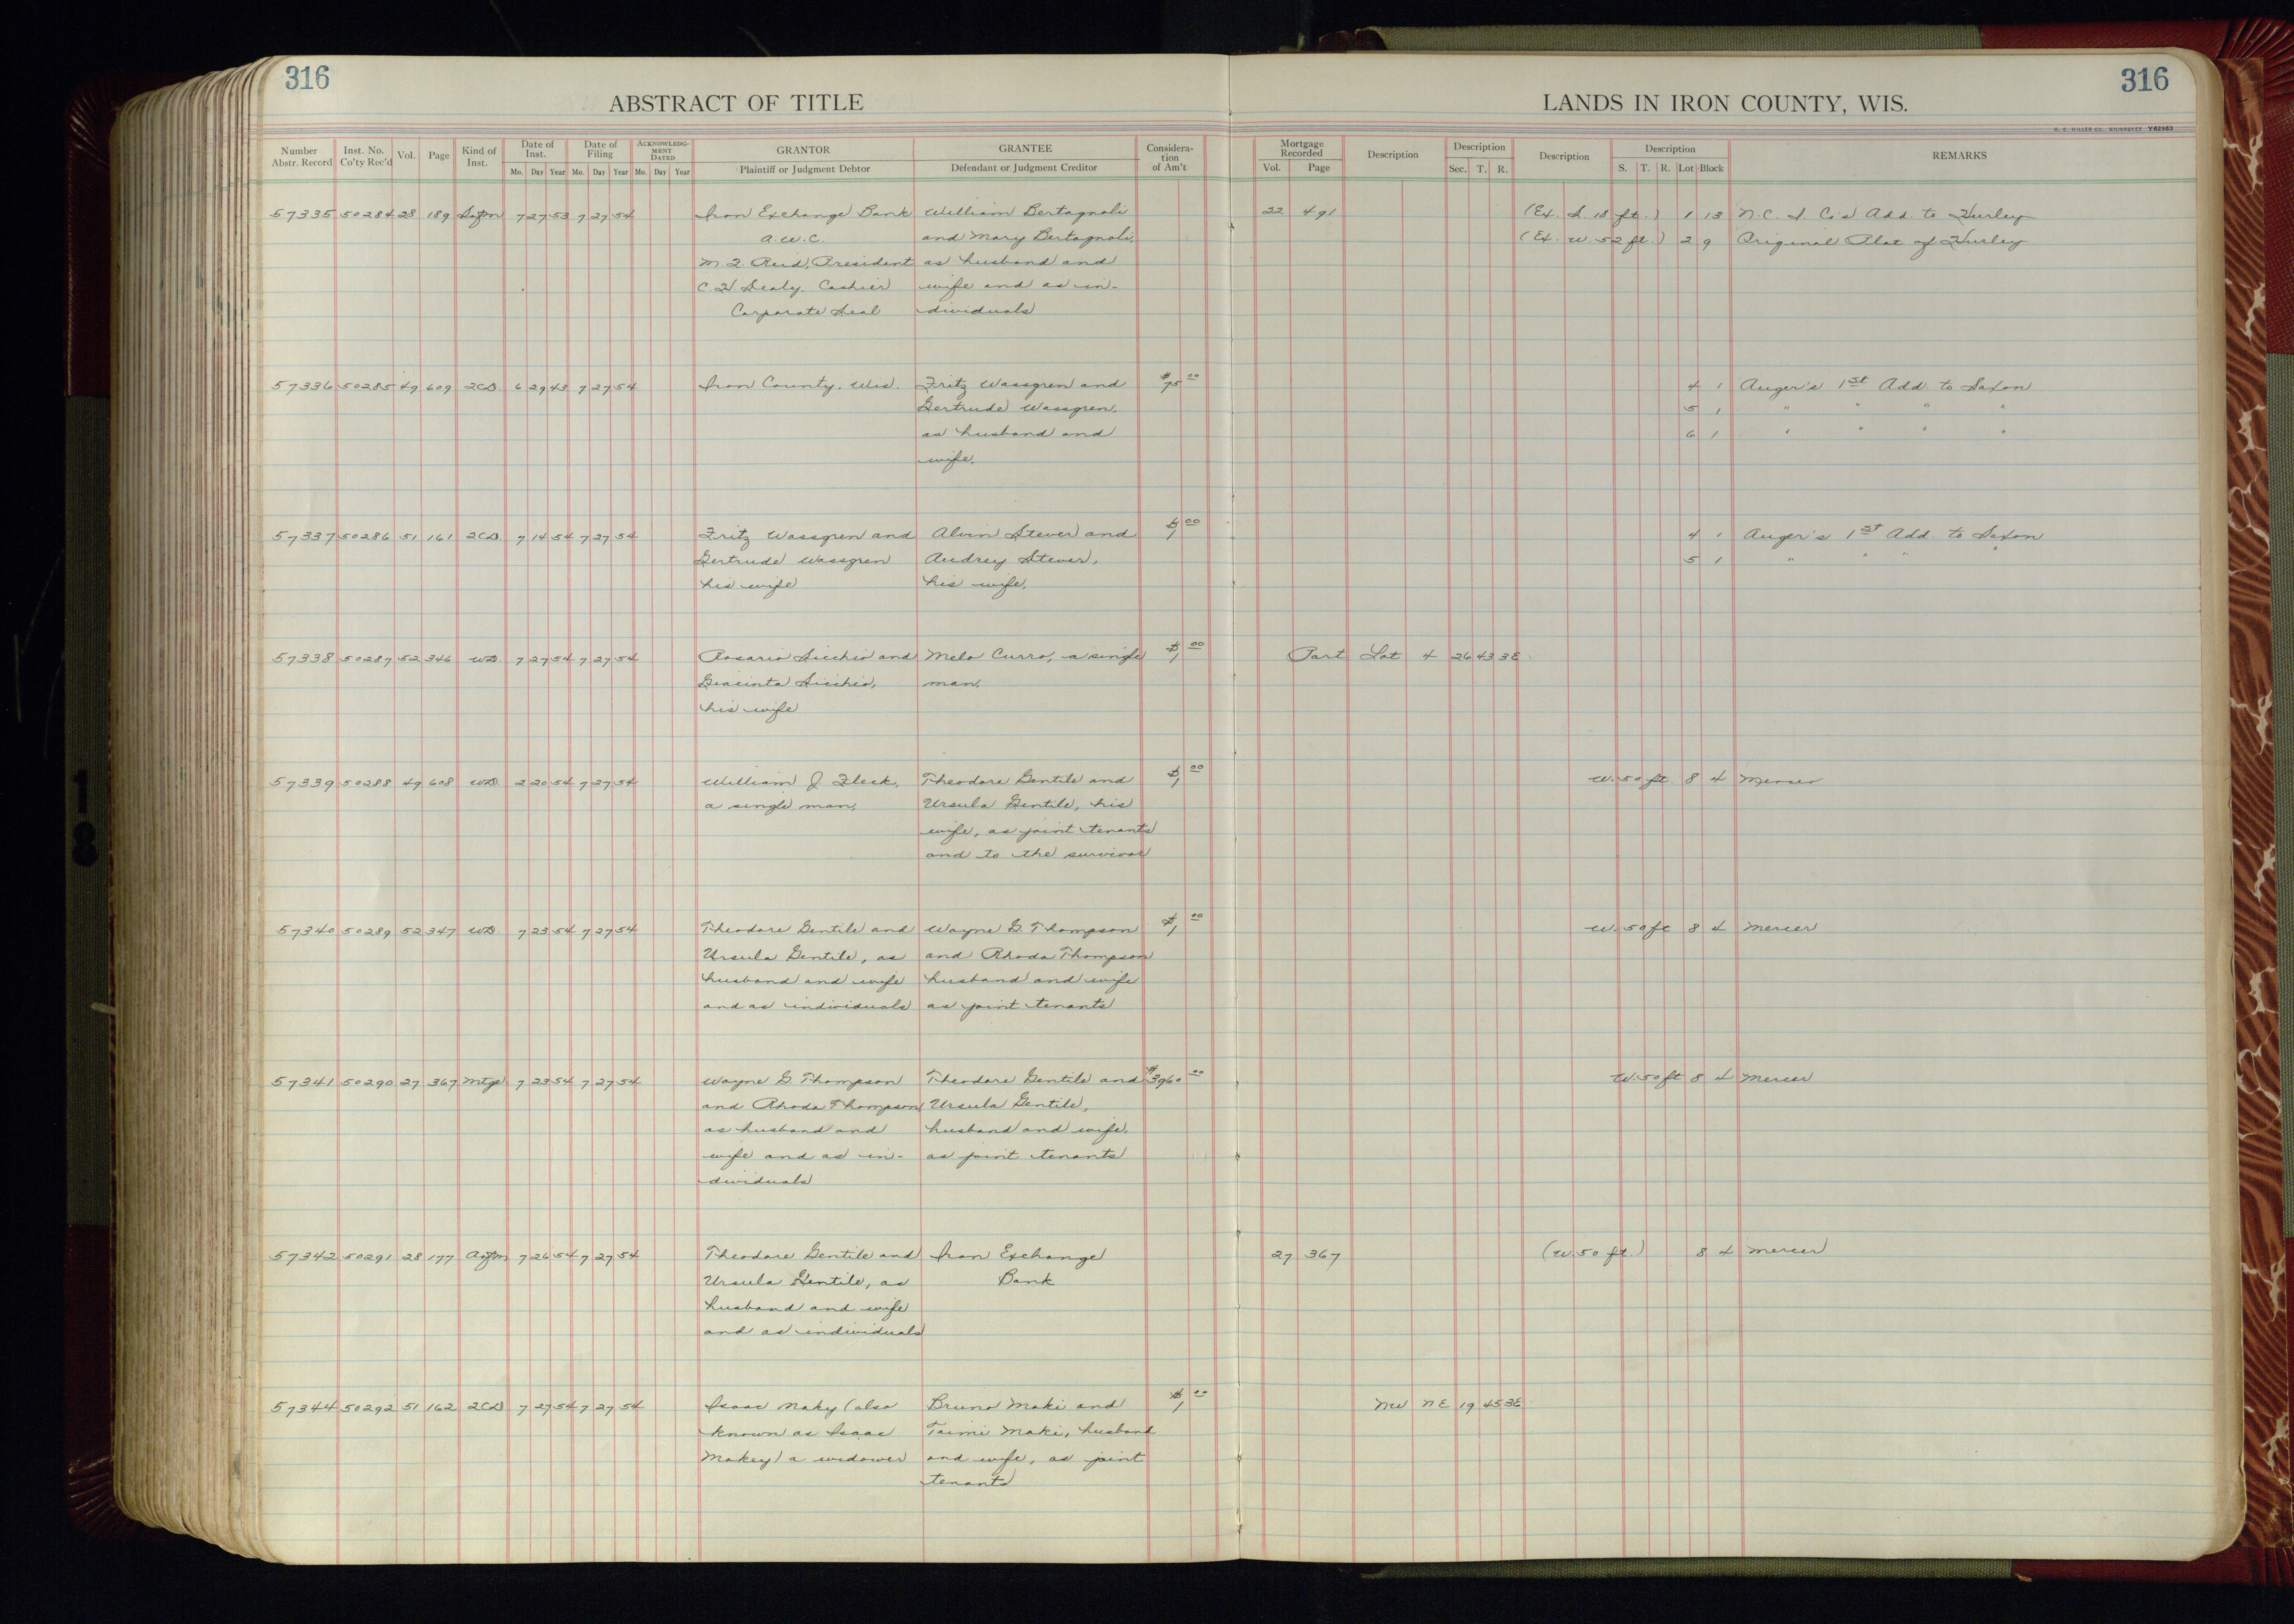 316
316
ABSTRACT OF TITLE
LANDS IN IRON COUNTY, WIS.
H. C. MILLER CO., MILWAUKEE Y62963
Number Abstr. Record
Inst. No. Co'ty Rec'd
Vol.
Page
Kind of Inst.
Date of Inst.
Mo. Day Year
Date of Filing
Mo. Day Year
ACKNOWLEDG-MENT DATED
Mo. Day Year
GRANTOR
Plaintiff or Judgment Debtor
GRANTEE
Defendant or Judgment Creditor
Considera-tion of Am't
Mortgage Recorded
Vol. Page
Description
Description
Sec. T. R.
Description
Description
S. T. R. Lot Block
REMARKS
57335 50284 28 189 7 27 53 7 27 54 Iron Exchange Bank William Bertagnoli 22 491 (Ex. S. 18 ft.) 1 13 N.C. I. Co's Add. to Hurley
a.w.c. and Mary Bertagnoli, (Ex. W. 52 ft.) 2 9 Original Plat of Hurley
President as husband and
C.H. Cashier wife and as in-
Corporate Seal dividuals
57336 50285 49 609 2CD 6 29 43 7 27 54 Iron County, Wis. Fritz Wassgren and $75 00 4 1 Auger's 1st Add. to Saxon
Gertrude Wassgren, 5 1 " " " "
as husband and 6 1 " " " "
wife,
57337 50286 51 161 2CD 7 14 54 7 27 54 Fritz Wassgren and Alvin Stever and $1 00 4 1 Auger's 1st Add. to Saxon
Gertrude Wassgren Audrey Stever, 5 1 " " " "
his wife his wife,
57338 50287 52 346 WD. 7 27 54 7 27 54 Rosario Sicchio and Melo Curro, a single $1 00 Part Lot 4 26 43 3E
Giacinta Sicchio, man,
his wife
57339 50288 49 608 WD. 2 20 54 7 27 54 William J. Fleck, Theodore Gentile and $1 00 W. 50 ft. 8 4 Mercer
a single man, Ursula Gentile, his
wife, as joint tenants
and to the survivor
57340 50289 52 347 WD 7 23 54 7 27 54 Theodore Gentile and Wayne G. Thompson $1 00 W. 50 ft 8 4 Mercer
Ursula Gentile, as and Rhoda Thompson
husband and wife husband and wife
and as individuals as joint tenants
57341 50290 27 367 Mtge. 7 23 54 7 27 54 Wayne G. Thompson Theodore Gentile and $3960 00 W. 50 ft 8 4 Mercer
and Rhoda Thompson, Ursula Gentile,
as husband and husband and wife,
wife and as in- as joint tenants
dividuals
57342 50291 28 177 7 26 54 7 27 54 Theodore Gentile and Iron Exchange 27 367 (W. 50 ft.) 8 4 Mercer
Ursula Gentile, as Bank
husband and wife
and as individuals
57344 50292 51 162 2CD 7 27 54 7 27 54 Isaac Maky (also Bruno Maki and $1 00 NW NE 19 45 3E
known as Isaac Taimi Maki, husband
Makey) a widower and wife, as joint
tenants